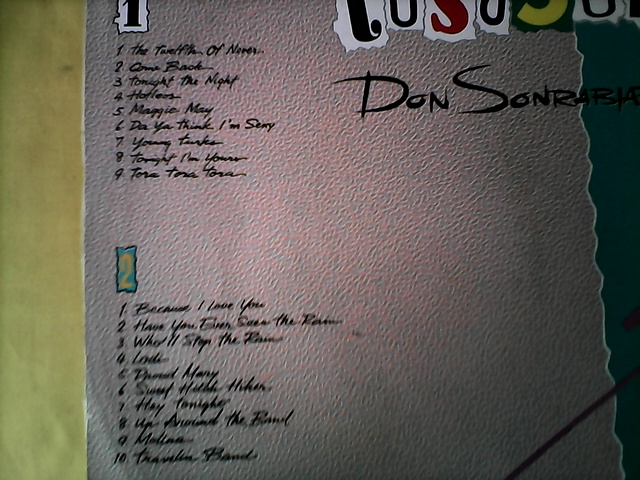 1
DON SONRABIA
1 The Twelfth Of Never
2 Come Back
3 Tonight the Night
4 Hotlegs
5 Maggie May
6 Da Ya Think I'm Sexy
7 Young Turks
8 Tonight I'm Yours
9 Tora Tora Tora
2
1 Because I Love You
2 Have You Ever Seen the Rain
3 Who'll Stop the Rain
4 Lodi
5 Proud Mary
6 Sweet Hitch Hiker
7 Hey Tonight
8 Up Around the Band
9 Molina
10 Travelin Band